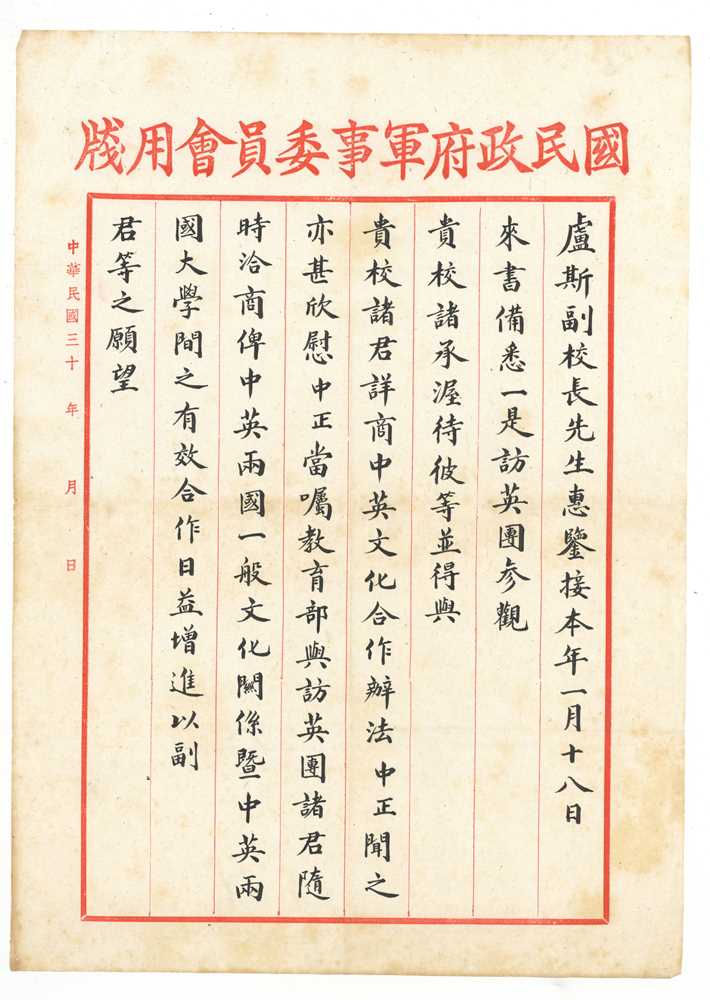 國民政府軍事委員會用牋
盧斯副校長先生惠鑒接本年一月十八日
來書備悉一是訪英團參觀
貴校諸承渥待彼等並得與
貴校諸君詳商中英文化合作辦法中正聞之
亦甚欣慰中正當囑教育部與訪英團諸君隨
時洽商俾中英兩國一般文化關係暨中英兩
國大學間之有效合作日益增進以副
君等之願望
中華民國三十年月日